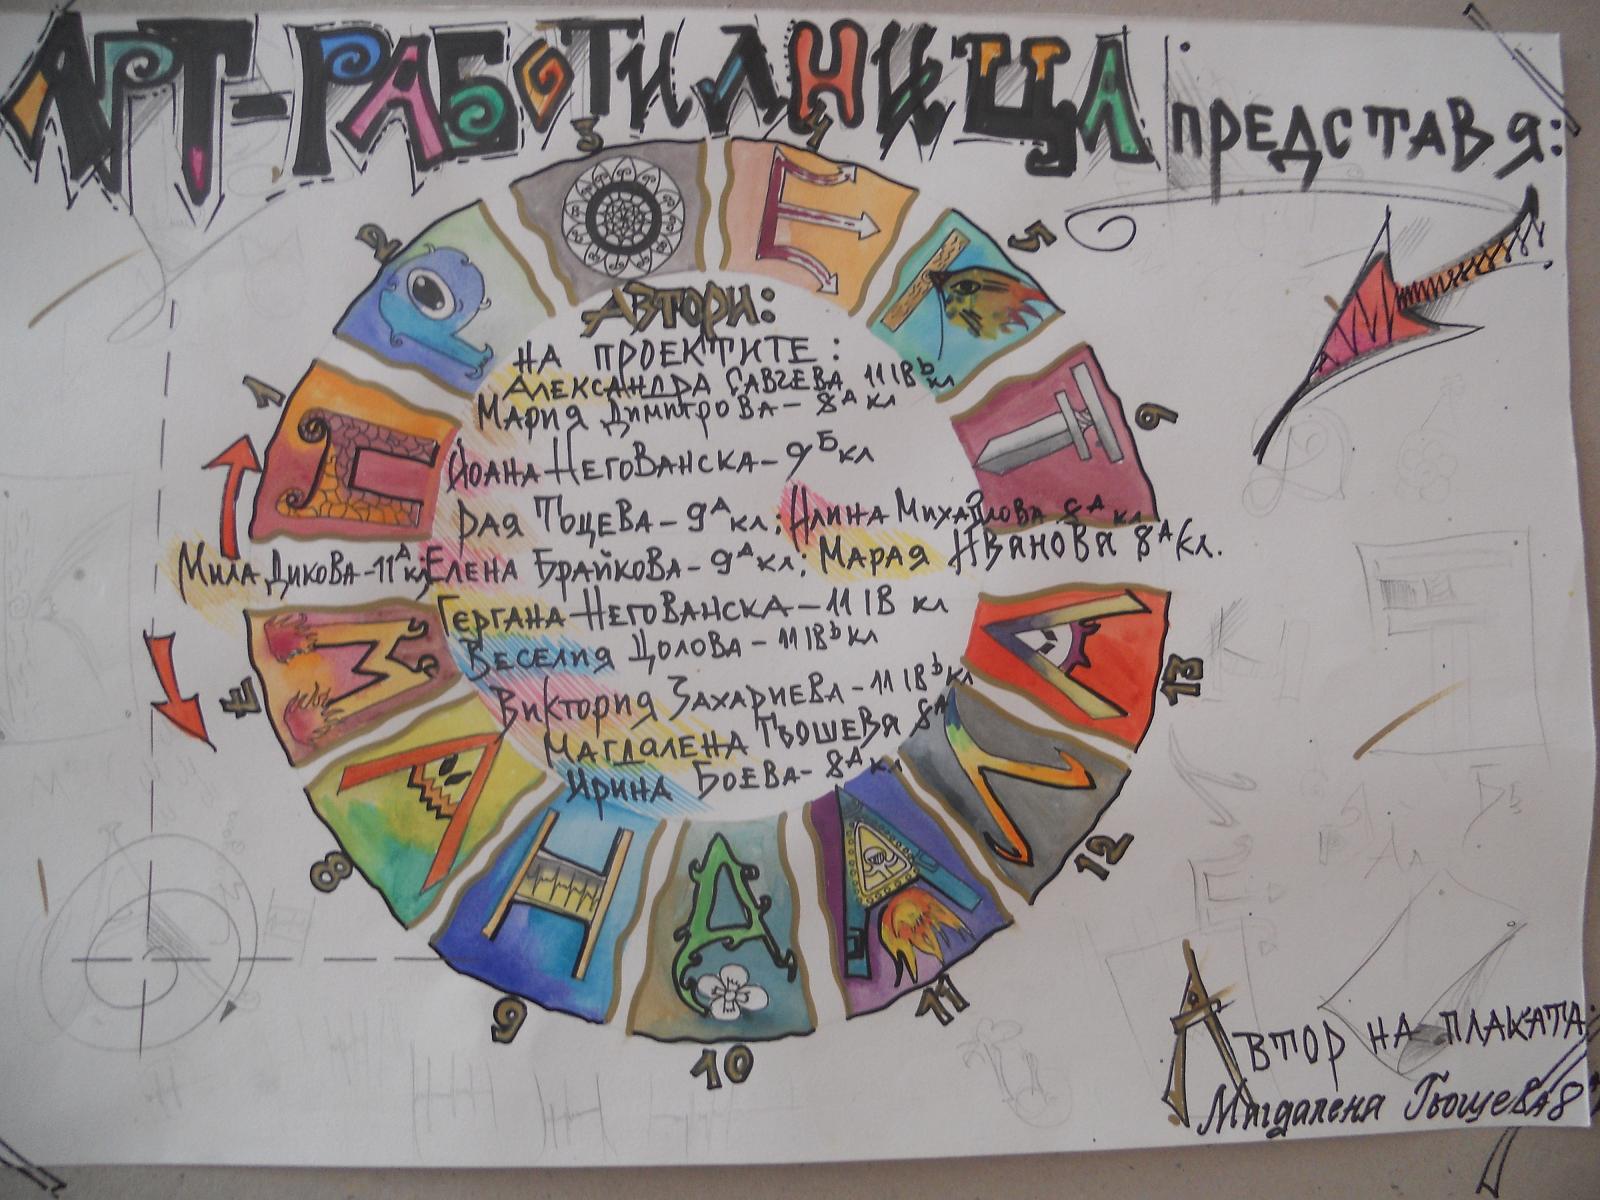 АРТ-РАБОТИЛНИЦА представя:
1 2 3 4 5 6
АВТОРИ:
НА ПРОЕКТИТЕ:
АЛЕКСАНДРА САВЧЕВА 11 IВЬ кл
МАРИЯ ДИМИТРОВА - 8А кл
ЙОАНА НЕГОВАНСКА - 9Б кл
РАЯ ТОЦЕВА - 9А кл; АЛИНА МИХАЙЛОВА 8А кл
МИЛА ДИКОВА - 11А кл; ЕЛЕНА БРАЙКОВА - 9А кл; МАРАЯ ИВАНОВА 8А кл.
ГЕРГАНА НЕГОВАНСКА - 11 IВ кл
ВЕСЕЛИЯ ЦОЛОВА - 11 IВЬ кл
ВИКТОРИЯ ЗАХАРИЕВА - 11 IВЬ кл
МАГДАЛЕНА ГЬОШЕВА 8А
ИРИНА БОЕВА - 8А кл
7 8 9 10 11 12 13
АВТОР НА ПЛАКАТА:
Магдалена Гьошева 8А